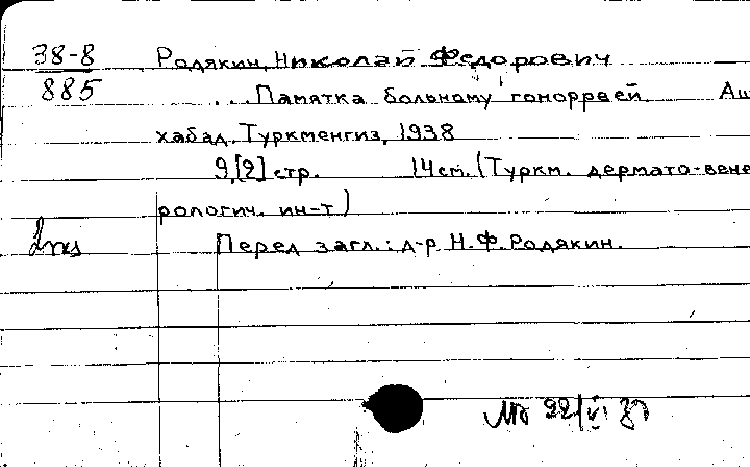 38-8 Родякин, Николай Федорович
885 ... Памятка больному гонорреей. Аш
хабад, Туркменгиз, 1938
9,[2] стр. 14 см. (Туркм. дермато-вене
рологич. ин-т)
Перед загл.: д-р Н.Ф. Родякин.
22/VI